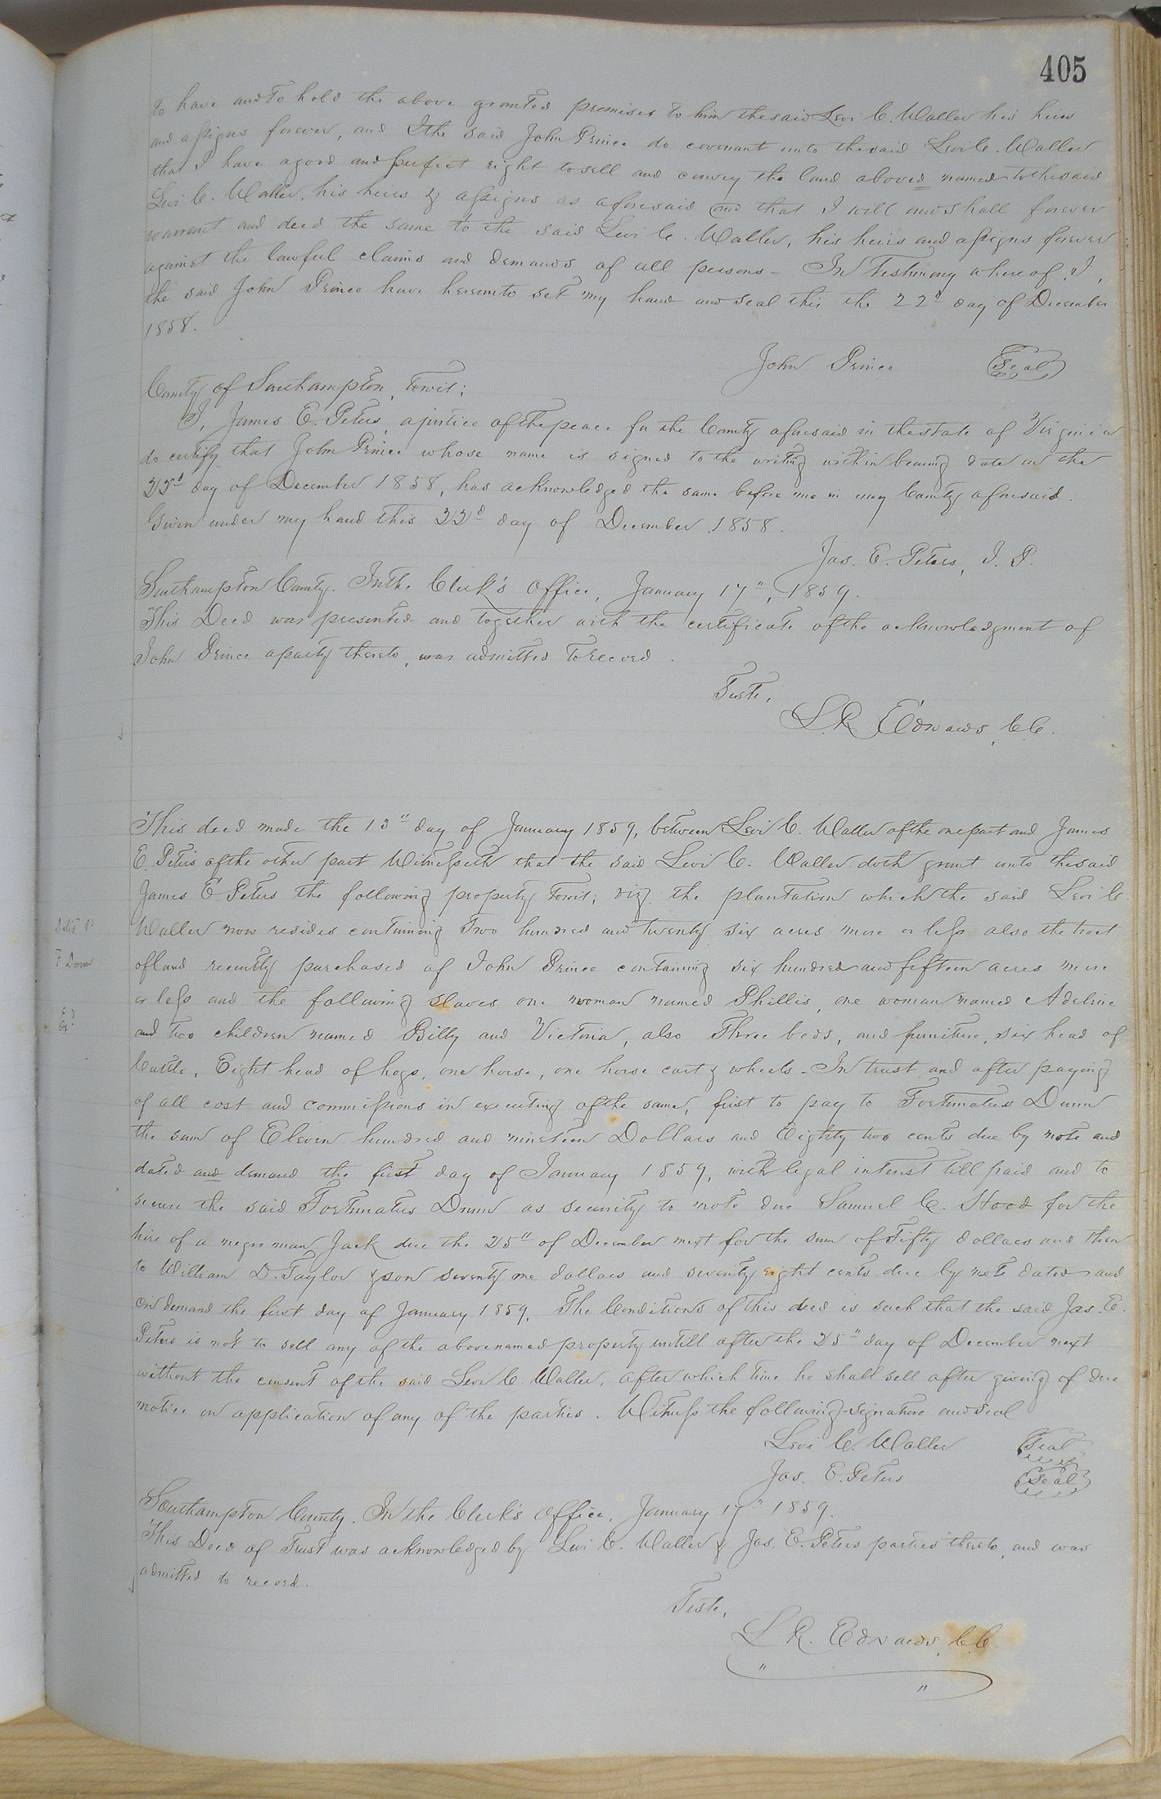 405
to have and to hold the above granted premises to him the said Levi C. Waller his heirs
and assigns forever, and I the said John Prince do covenant unto the said Levi C. Waller
that I have a good and perfect right to sell and convey the land above named to the said
Levi C. Waller, his heirs & assigns as aforesaid and that I will and shall forever
warrant and deed the same to the said Levi C. Waller, his heirs and assigns forever
against the lawful claims and demands of all persons - In Testimony whereof, I,
the said John Prince have hereunto set my hand and seal this the 22d day of December
1858.
John Prince Seal
County of Southampton, towit;
I, James E. Peters, a justice of the peace for the County aforesaid in the state of Virginia
do certify that John Prince whose name is signed to the writing within bearing date on the
22d day of December 1858, has acknowledged the same before me in my County aforesaid.
Given under my hand this 22d day of December 1858.
Jas. E. Peters, J. P.
Southampton County. In the Clerk's Office, January 17", 1859.
This Deed was presented and together with the certificate of the acknowledgment of
John Prince a party thereto, was admitted to record.
Teste,
L R Edwards, C.C.
This deed made the 13" day of January 1859, between Levi C. Waller of the one part and James
E. Peters of the other part Witnesseth that the said Levi C. Waller doth grant unto the said
James E Peters the following property towit; viz. the plantation which the said Levi C.
Waller now resides containing Two hundred and twenty six acres more or less also the tract
of land recently purchased of John Prince containing six hundred and fifteen acres more
or less and the following slaves one woman named Phillis, one woman named Adeline
and two children named Billy and Victoria, also Three beds, and furniture, six head of
Cattle, Eight head of hogs, one horse, one horse cart & wheels - In trust and after paying
of all cost and commissions in executing of the same, first to pay to Fortunatus Dunn
the sum of Eleven hundred and nineteen Dollars and Eighty two cents due by note and
dated and demand the first day of January 1859, with legal interest till paid and to
secure the said Fortunatus Dunn as security to note due Samuel C. Hood for the
hire of a negro man Jack due the 25" of December next for the sum of Fifty dollars and then
to William D. Taylor & son seventy one dollars and seventy eight cents due by note dated and
on demand the first day of January 1859. The Conditions of this deed is such that the said Jas. E.
Peters is not to sell any of the above named property untill after the 25" day of December next
without the consent of the said Levi C. Waller, after which time he shall sell after giving of due
notice on application of any of the parties. Witness the following signature and seal
Levi C. Waller Seal
Jas. E. Peters Seal
Southampton County. In the Clerk's Office, January 17" 1859.
This Deed of Trust was acknowledged by Levi C. Waller & Jas. E. Peters parties thereto, and was
admitted to record.
Teste,
L R. Edwards, C.C.